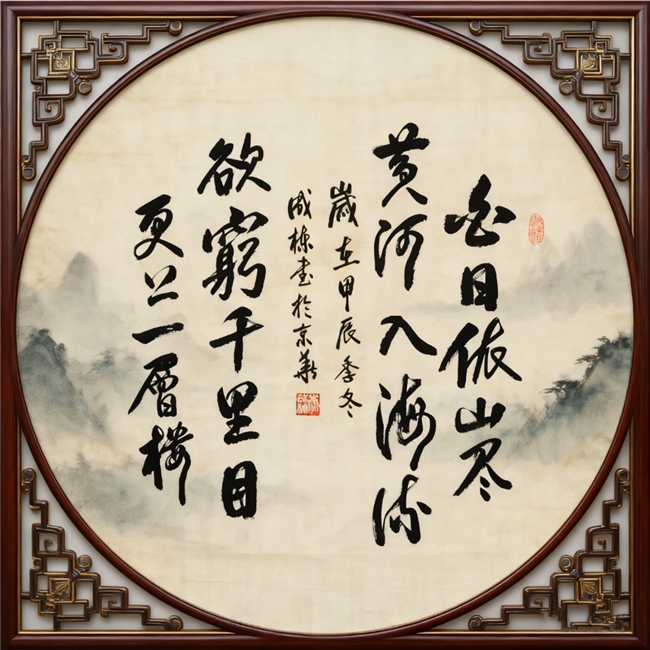 白日依山尽
黄河入海流
歲在甲辰季冬
成栋书於京華
欲窮千里目
更上一層楼